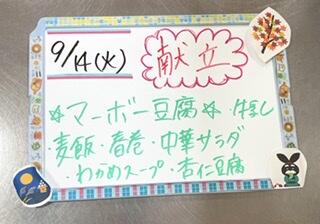 9/14(火) 献立
☆マーボー豆腐☆・牛乳
・麦飯・春巻・中華サラダ
・わかめスープ・杏仁豆腐